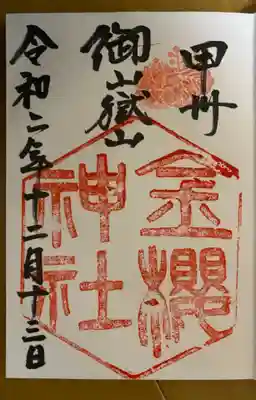 甲州
御嶽山
金櫻
神社
令和二年十二月十三日